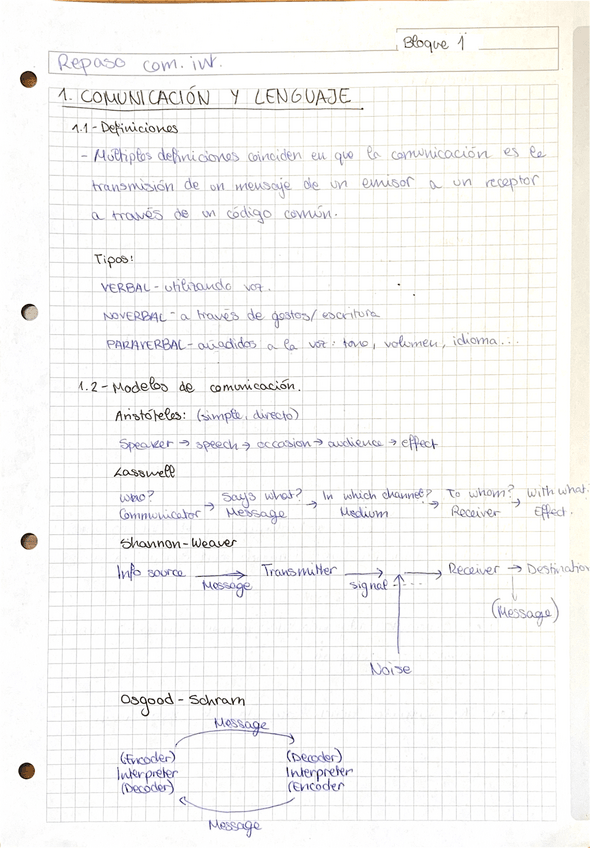 Bloque 1
Repaso com. int.
1. COMUNICACIÓN Y LENGUAJE
1.1 - Definiciones
- Múltiples definiciones coinciden en que la comunicación es la
transmisión de un mensaje de un emisor a un receptor
a través de un código común.
Tipos:
VERBAL - utilizando voz.
NO VERBAL - a través de gestos/ escritura
PARAVERBAL - añadidos a la voz: tono, volumen, idioma...
1.2 - Modelos de comunicación.
Aristóteles: (simple, directo)
Speaker → speech → occasion → audience → effect
Lasswell
Who? Says what? In which channel? To whom? With what.
Communicator → Message → Medium → Receiver → Effect.
Shannon-Weaver
Info source → Transmitter → → Receiver → Destination
Message signal - . . . .
(Message)
Noise
Osgood - Schram
Message
(Encoder) (Decoder)
Interpreter Interpreter
(Decoder) (Encoder
Message